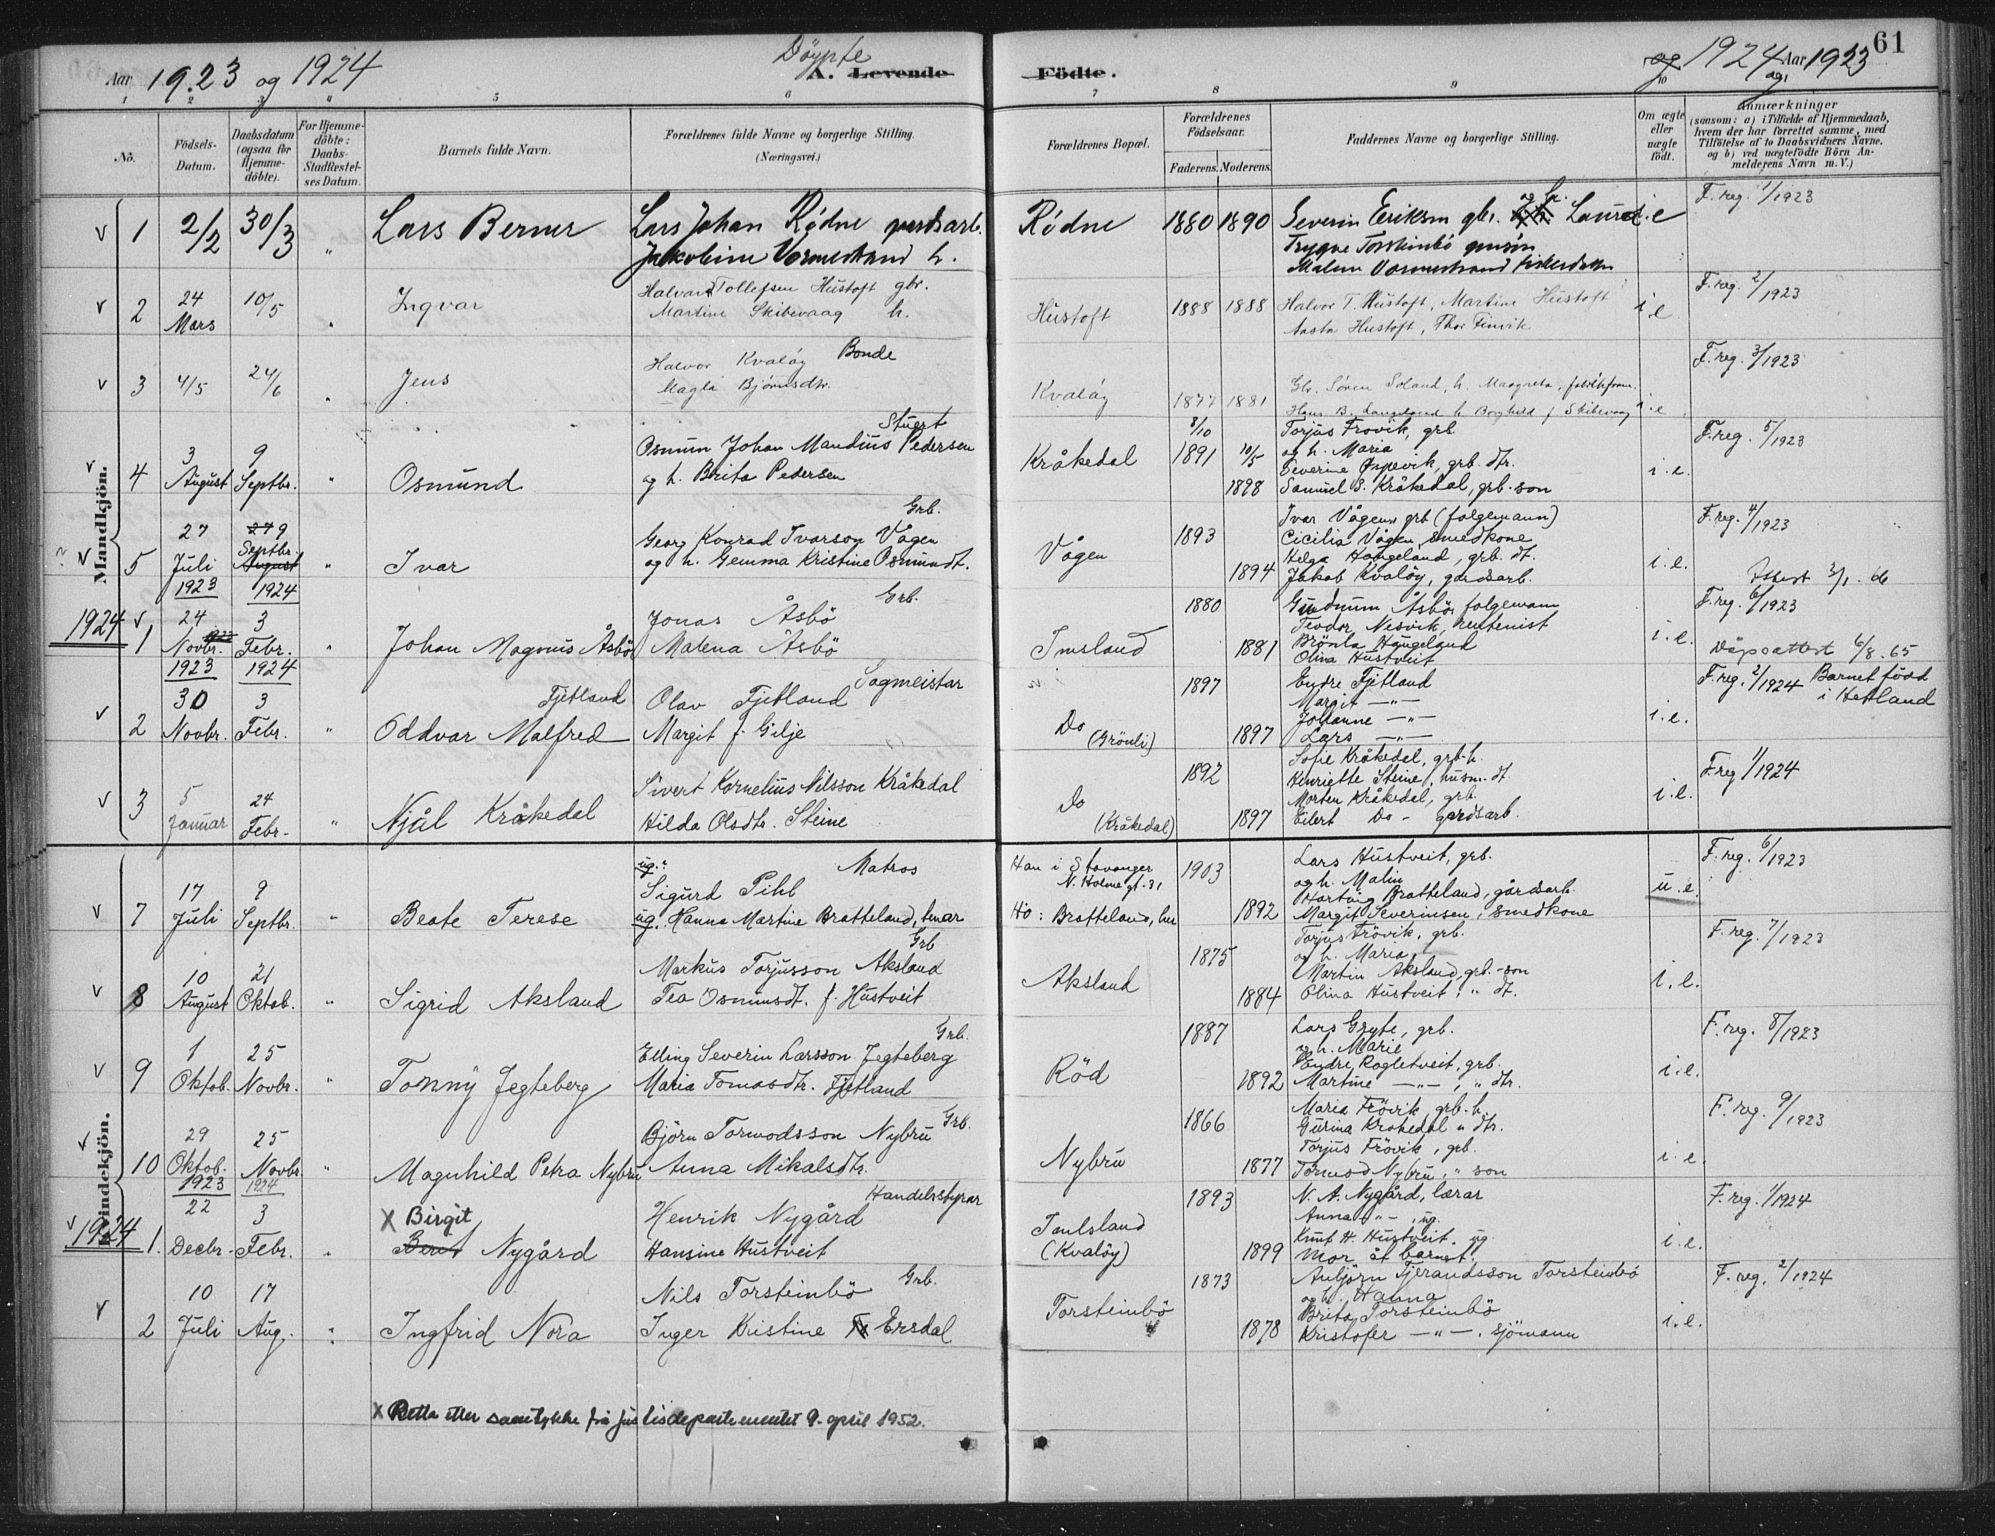 Aar 1923 og 1924
Döypte
A. Levende Födte.
og 1924 Aar 1923
og
61
1 2 3 4 5 6 7 8 9 10
No.
Födsels-Datum.
Daabsdatum (ogsaa for Hjemme-döbte).
For Hjemme-döbte: Daabs-Stadfæstel-ses Datum.
Barnets fulde Navn.
Forældrenes fulde Navne og borgerlige Stilling. (Næringsvei.)
Forældrenes Bopæl.
Forældrenes Födselsaar.
Faderens. Moderens.
Faddernes Navne og borgerlige Stilling.
Om ægte eller uægte födt.
Anmærkninger
(saasom: a) i Tilfælde af Hjemmedaab, hvem der har forrettet samme, med Tilföielse af to Daabsvidners Navne, og b) ved uægtefödte Börn An-melderens Navn m. V.)
Mandkjön.
v 1 2/2 30/3 " Lars Berner
Lars Johan Rødne gardsarb.
Jakobine Vormestrand h.
Rødne 1880 1890
Severin Eriksen gbr. og h. Laura
Trygve Torsteinbö
Malene Vormestrand
i.e F.reg. 1/1923
v 2 24 Mars 10/5 " Ingvar
Halvard Tollefsen Hustoft gbr.
Martine Skibevaag h.
Hustoft 1888 1888
Halvor T. Hustoft, Martine Hustoft
Aasta Hustoft, Thor Finvik
i.e. F.reg. 2/1923
v 3 4/5 24/6 " Jens
Halvor Kvaløy Bonde
Magla Bjørnsdtr.
Kvaløy 1877 1881
Gbr. Søren Soland, h. Maagreta,
Hans B. Langeland h. Borghild f. Skibevaag
i.e. F.reg. 3/1923
v 4 3 August 9 Septbr. " Osmund
Stuert
Osmun Johan Mandius Pedersen
og h. Brita Pedersen
Kråkedal 3/10 1891 10/5 1898
Torjus Frövik, grb.
og h. Maria
Severine Øspevik, grb. dtr.
Samuel S. Kråkedal, grb. son
i.e. F.reg. 5/1923
v 5 27 Juli 1923 27 9 August Septbr. 1924 " Ivar
Grb.
Georg Konrad Ivarson Vågen
og h. Gemma Kristine Osmundt.
Vågen 1893 1894
Ivar Vågen, grb (følgemann)
Cicilia Vågen, smedkone
Helga Haugeland, grb. dt.
Jakob Kvaløy, gardsarb.
i.e. F.reg. 4/1923
Attest 3/1. 66
1924 v 1 24 Novbr. 1923 3 Febr. 1924 Johan Magnus Åsbö
Grb.
Jonas Åsbö
Malena Åsbö
Imsland 1880 1881
Gudmum Åsbö, følgemann
Teodor Nesvik, rentenist
Brönla Haugeland
Olina Hustveit
i.e. F.reg. 6/1923
Dåpsattest 6/8.65
v 2 30 Novbr. 3 Febr. " Oddvar Malfred Fjetland
Sagmeistar
Olav Fjetland
Margit f. Gilje
Do (Grönli) 1897 1897
Endre Fjetland
Margit —"—
Johanne —"—
Lars —"—
i.e. F.reg. 2/1924 Barnet född i Hetland
v 3 5 Januar 24 Febr. " Njål Kråkedal
Sivert Kornelius Nilsson Kråkedal
Hilda Olsdtr. Steine
Do (Kråkedal) 1892 1897
Sofie Kråkedal, grb.h.
Henriette Steine, husm. dt.
Morten Kråkedal, grb.
Eilert Do - gardsarb.
i.e. F.reg 1/1924
Kvindekjön.
v 7 17 Juli 9 Septbr. " Beate Terese
ug. Matros
Sigurd Pihl
ug. Hanna Martine Bratteland,
Han i Stavanger N. Holmegt. 31
Ho: Bratteland, 1903 1892
Lars Hustveit, grb.
og h. Malin
Hartvig Bratteland, gårdsarb.
Margit Severinsen, smedkone
u.e. F.reg. 6/1923
v 8 10 August 21 Oktob. " Sigrid Aksland
Grb
Markus Torjusson Aksland
Tea Osmunsdt. f. Hustveit
Aksland 1875 1884
Torjus Frövik, grb.
og h. Maria
Martin Aksland, grb.-son
Olina Hustveit, " dt.
i.e. F.reg. 7/1923
v 9 1 Oktob. 25 Novbr. " Tonny Jegteberg
Grb.
Elling Severin Larsson Jegteberg
Maria Tomasdtr. Fjetland
Röd 1887 1892
Lars Gryte, grb.
og h. Marie
Endre Rogletveit, grb.
Martine —"—, " dtr.
i.e. F.reg. 8/1923
v 10 29 Oktob. 1923 25 Novbr. 1924 " Magnhild Petra Nybru
Björn Tormodsson Nybru Grb.
Anna Mikalsdtr.
Nybru 1866 1877
Maria Frövik, grb.h.
Gurina Kråkedal " dtr.
Torjus Frövik, grb.
Tormod Nybru, " son
i.e. F.reg. 9/1923
v 1924 1. 22 Decbr. 3 Febr. " X Birgit Berit Nygård
Handelsstyrar
Henrik Nygård
Hansine Hustveit
Imlsland (Kvaløy) 1893 1899
N. A. Nygård, lærar
Anna —"—, ug.
Knut H. Hustveit, ug.
Mor åt barnet.
i.e. F.reg. 1/1924
v 2 10 Juli 17 Aug. " Ingfrid Nora
Nils Torsteinbö Grb.
Inger Kristine Ersdal
Torsteinbö 1873 1878
Anbjörn Tjerandsson Torsteinbö
og h. Hanna
Brita Torsteinbö
Kristofer —"—, sjömann
i.e. F.reg. 2/1924
X Retta etter samtykke frå justisdepartementet 9. april 1952.